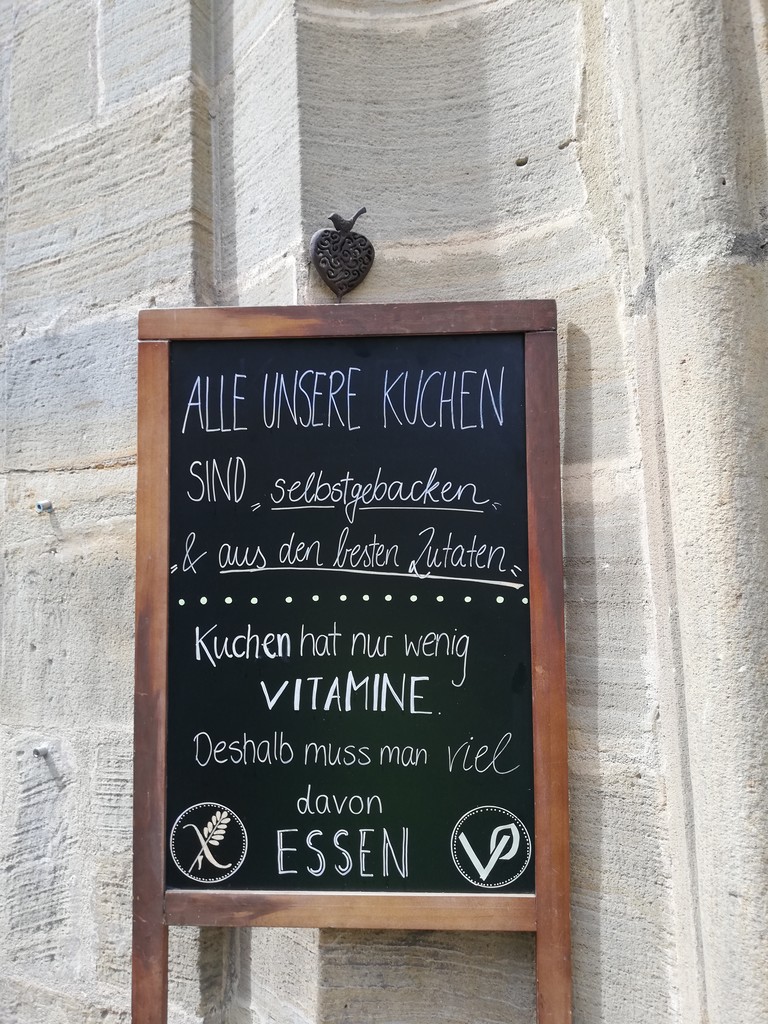 ALLE UNSERE KUCHEN
SIND selbstgebacken
& aus den besten Zutaten
Kuchen hat nur wenig
VITAMINE.
Deshalb muss man viel
davon
ESSEN